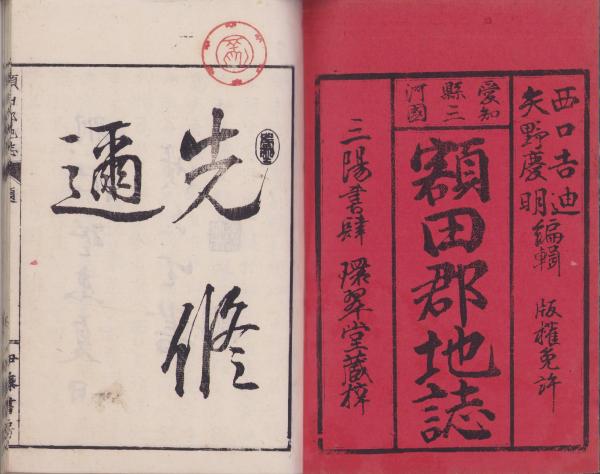 西口吉迪
矢野慶明
編輯
版權免許
愛知
縣三
河國
額田郡地誌
三陽書肆 環翠堂藏梓
先修
邇
額田郡地誌